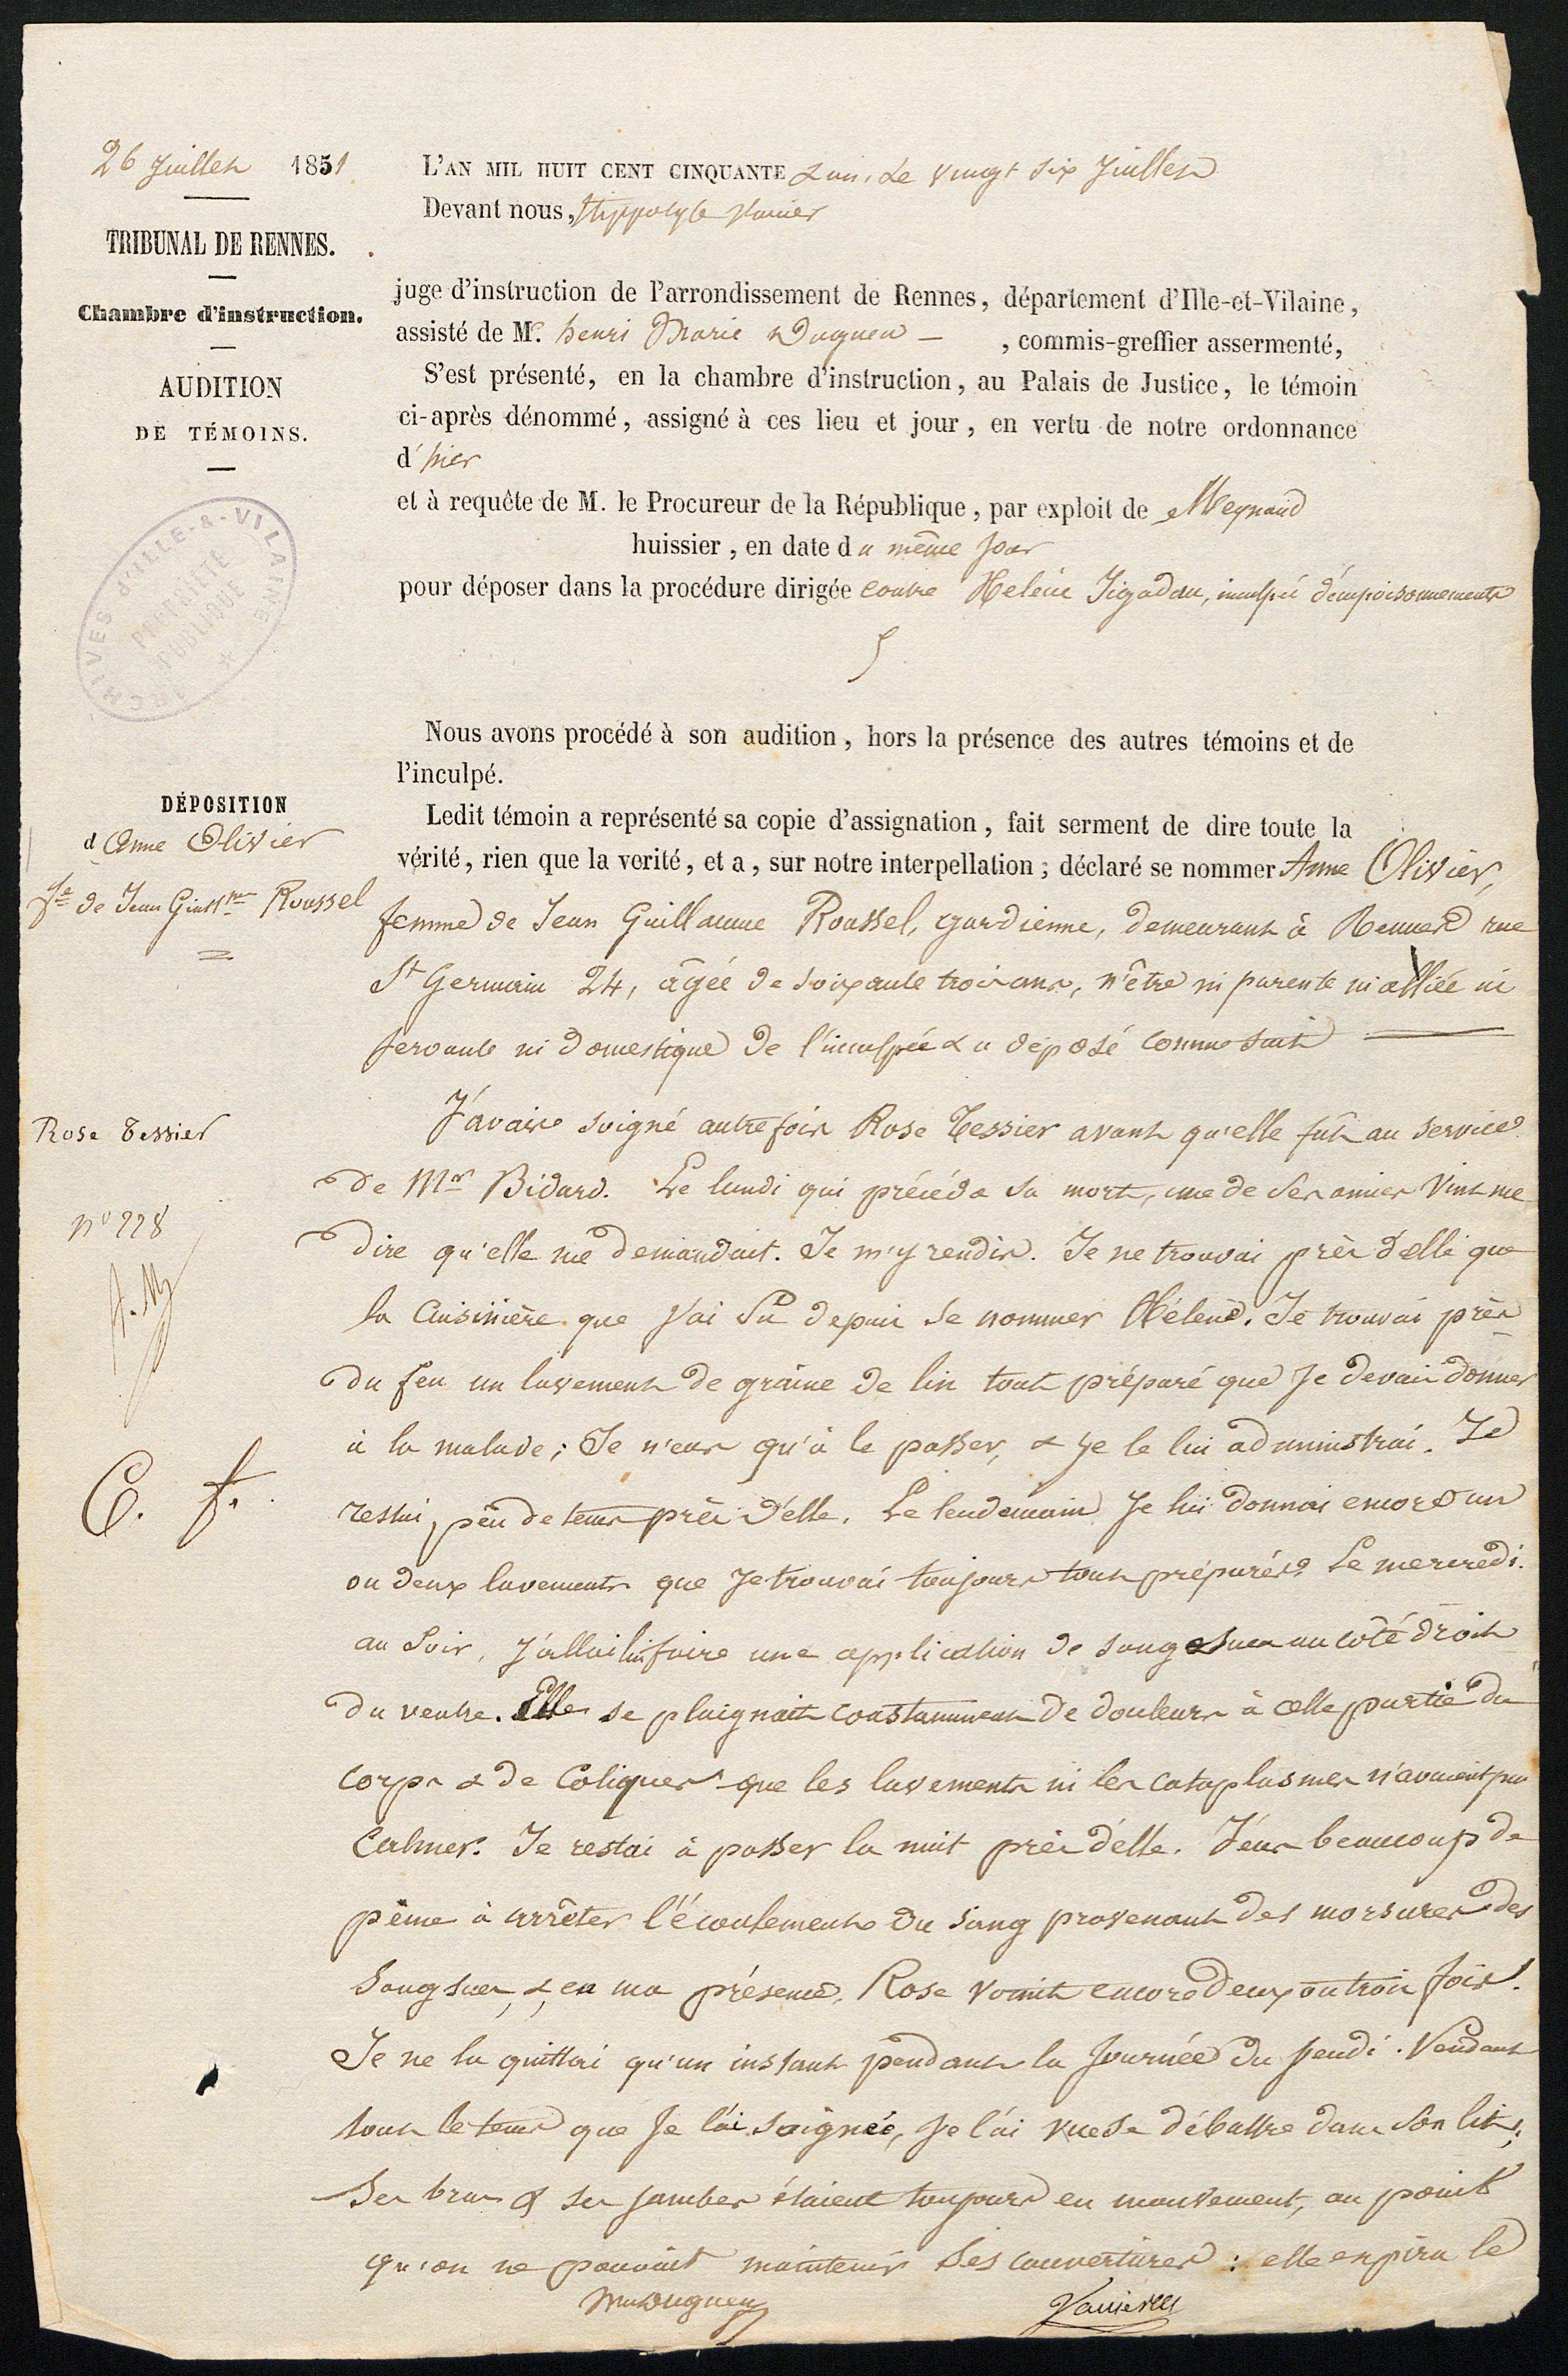 26 Juillet 1851
TRIBUNAL DE RENNES.
Chambre d'instruction.
AUDITION
DE TÉMOINS.
ARCHIVES D'ILLE-&-VILAINE
PROPRIÉTÉ
PUBLIQUE
L'AN MIL HUIT CENT CINQUANTE & un, Le vingt six Juillet
Devant nous, Hippolyte Vanier
juge d'instruction de l'arrondissement de Rennes, département d'Ille-et-Vilaine,
assisté de Mr. henri Marie Duguen – , commis-greffier assermenté,
S'est présenté, en la chambre d'instruction, au Palais de Justice, le témoin
ci-après dénommé, assigné à ces lieu et jour, en vertu de notre ordonnance
d'hier
et à requête de M. le Procureur de la République, par exploit de Meynaud
huissier, en date du même Jour
pour déposer dans la procédure dirigée contre Helène Jégadau, inculpée d'empoisonnements
Nous avons procédé à son audition, hors la présence des autres témoins et de
l'inculpé.
DÉPOSITION
d'Anne Olivier
fe de Jean Guillme Roussel
Ledit témoin a représenté sa copie d'assignation, fait serment de dire toute la
vérité, rien que la verité, et a, sur notre interpellation; déclaré se nommer Anne Olivier,
femme de Jean Guillaume Roussel, gardienne, demeurant à Rennes rue
St Germain 24, âgée de soixante trois ans, n'être ni parente ni alliée ni
servante ni domestique de l'inculpée & a déposé comme suit
Rose Tessier
n° 228
C. f.
J'avais soigné autrefois Rose Tessier avant qu'elle fut au service
de Mr Bidard. Le lundi qui précéda sa mort, une de ses amies vint me
dire qu'elle me demandait. Je m'y rendis. Je ne trouvai près d'elle que
la Cuisinière que j'ai su depuis se nommer Hélène. Je trouvai près
du feu un lavement de graine de lin tout préparé que Je devais donner
à la malade; Je n'eus qu'à le passer, & je le lui administrai. Je
restai peu de tems près d'elle. Le lendemain Je lui donnai encore un
ou deux lavements que Je trouvai toujours tout préparés. Le mercredi
au Soir, J'allai lui faire une application de sangsues au côté droit
du ventre. Elle se plaignait constamment de douleurs à cette partie du
corps & de Coliques que les lavements ni les cataplasmes n'avaient pu
Calmer. Je restai à passer la nuit près d'elle. J'eus beaucoup de
peine à arrêter l'écoulement du sang provenant des morsures des
Sangsues, & en ma présence, Rose vomit encore deux ou trois fois.
Je ne la quittai qu'un instant pendant la Journée du Jeudi. Pendant
tout le tems que Je l'ai soignée, Je l'ai vue se débattre dans son lit;
Ses bras & ses Jambes étaient toujours en mouvement, au point
qu'on ne pouvait maintenir ses couvertures : elle expira le
hmDuguen
Vanier